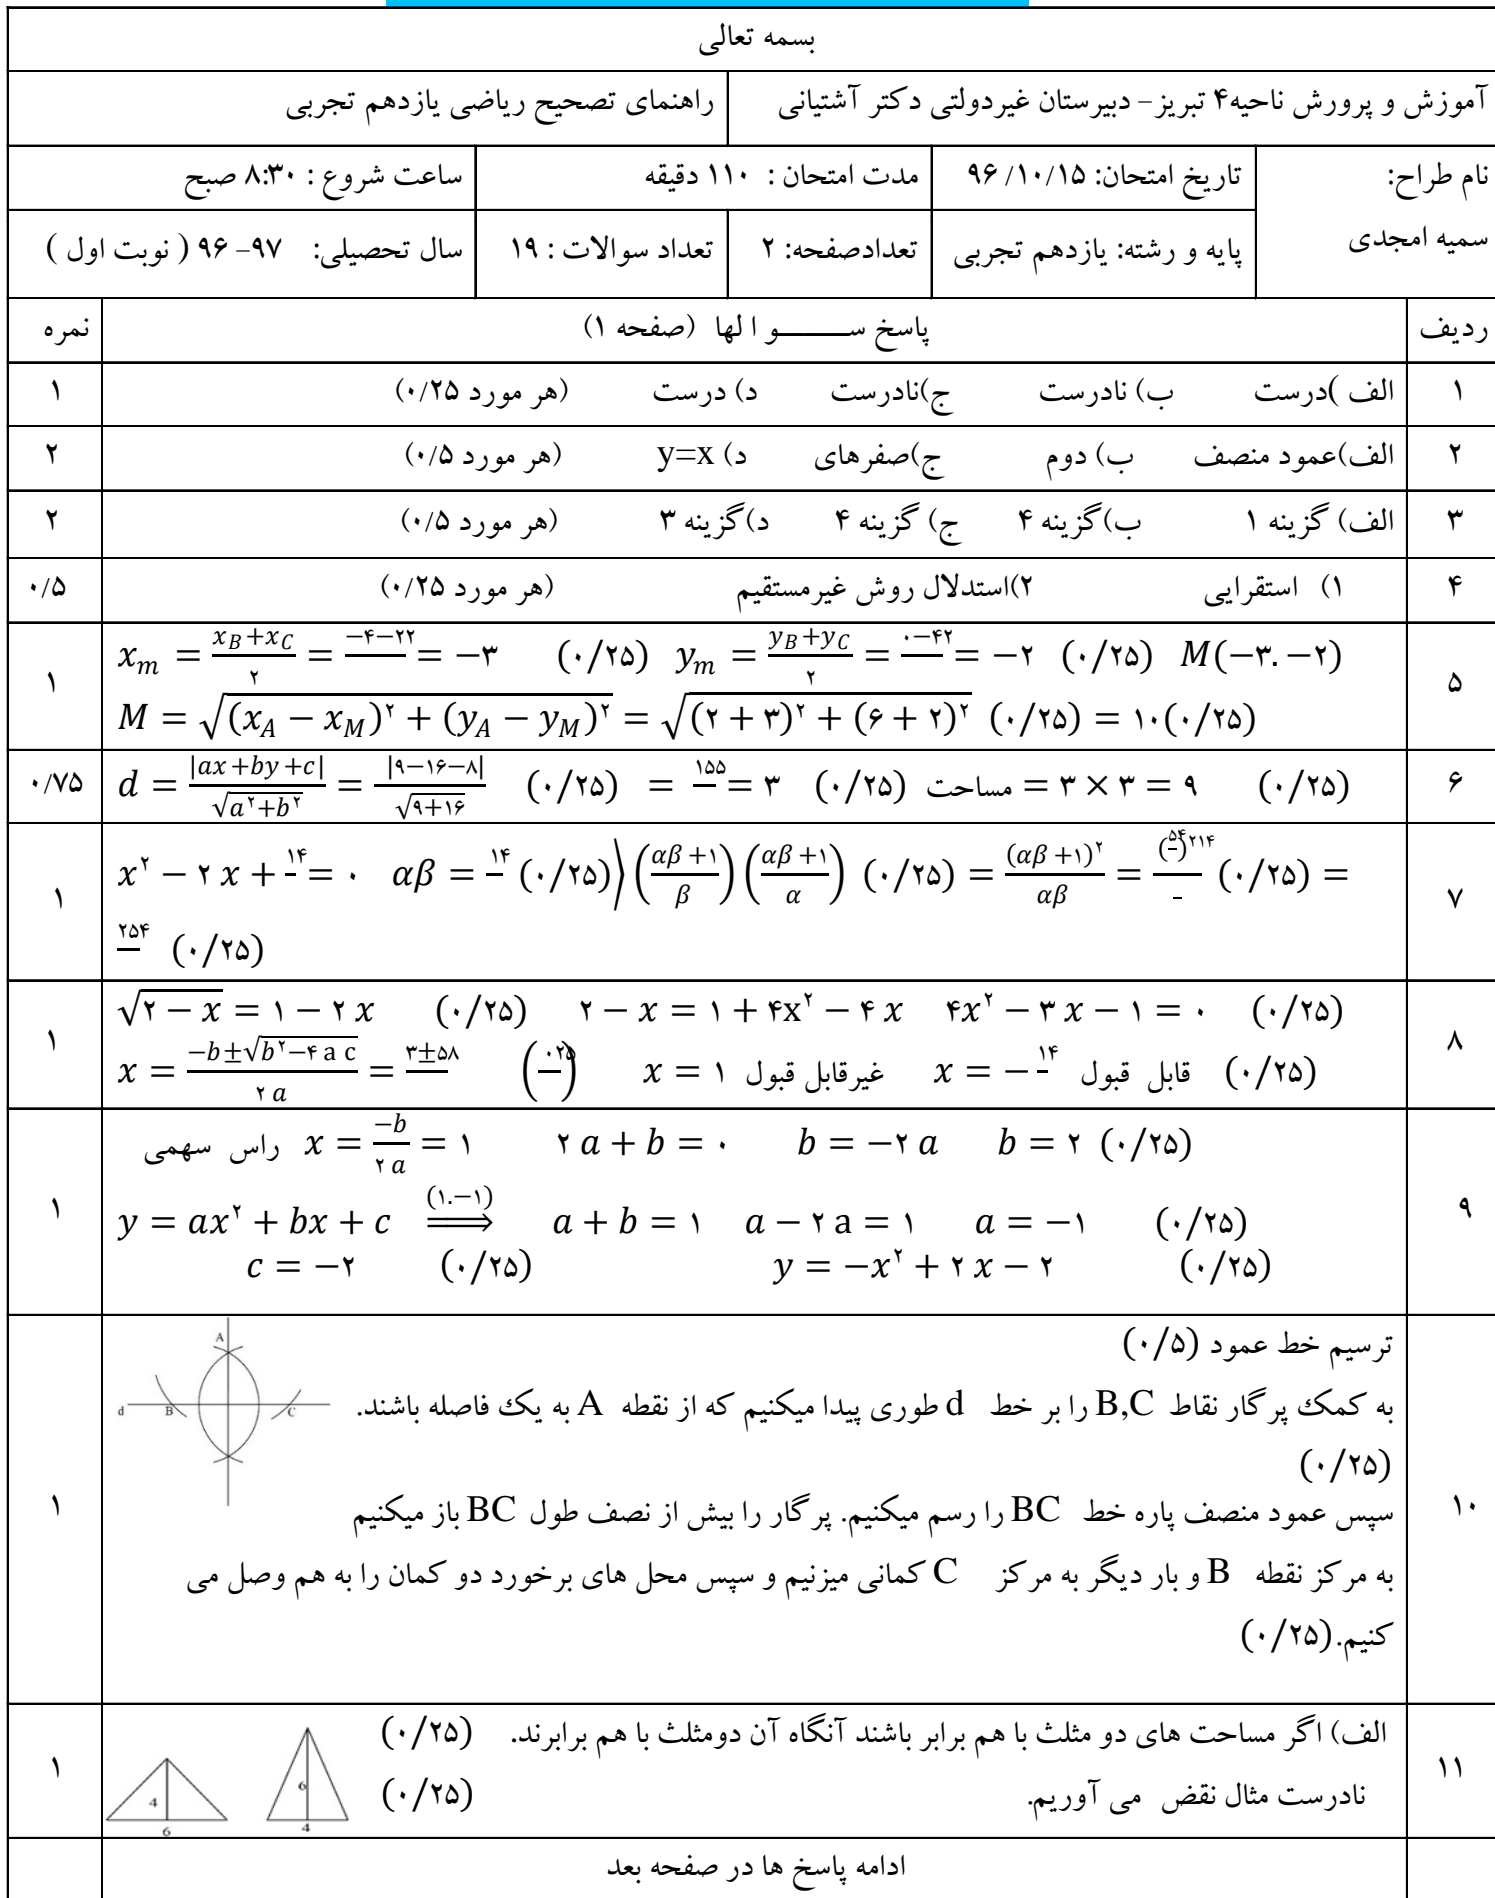 بسمه تعالی
آموزش و پرورش ناحیه۴ تبریز– دبیرستان غیردولتی دکتر آشتیانی	راهنمای تصحیح ریاضی یازدهم تجربی
نام طراح:	تاریخ امتحان: ۹۶/۱۰/۱۵	مدت امتحان : ۱۱۰ دقیقه	ساعت شروع : ۸:۳۰ صبح
سمیه امجدی	پایه و رشته: یازدهم تجربی	تعدادصفحه: ۲	تعداد سوالات : ۱۹	سال تحصیلی: ۹۷–۹۶ ( نوبت اول )
ردیف	پاسخ ســـــــو ا لها (صفحه ۱)	نمره
۱	الف )درست ب) نادرست ج)نادرست د) درست (هر مورد ۰/۲۵)	۱
۲	الف)عمود منصف ب) دوم ج)صفرهای د) y=x (هر مورد ۰/۵)	۲
۳	الف) گزینه ۱ ب)گزینه ۴ ج) گزینه ۴ د)گزینه ۳ (هر مورد ۰/۵)	۲
۴	۱) استقرایی ۲)استدلال روش غیرمستقیم (هر مورد ۰/۲۵)	۰/۵
۵	x_m = (x_B+x_C)/۲ = −۴−۲۲ = −۳ (۰/۲۵) y_m = (y_B+y_C)/۲ = ۰−۴۲ = −۲ (۰/۲۵) M(−۳.−۲)	۱
M = √((x_A − x_M)^۲ + (y_A − y_M)^۲) = √((۲ + ۳)^۲ + (۶ + ۲)^۲) (۰/۲۵) = ۱۰(۰/۲۵)
۶	d = |ax+by+c|/√(a^۲+b^۲) = |۹−۱۶−۸|/√(۹+۱۶) (۰/۲۵) = ۱۵۵ = ۳ (۰/۲۵) مساحت = ۳ × ۳ = ۹ (۰/۲۵)	۰/۷۵
۷	x^۲ − ۲ x + ۱۴ = ۰ αβ = ۱۴ (۰/۲۵)⟩ ((αβ+۱)/β)((αβ+۱)/α) (۰/۲۵) = (αβ+۱)^۲/αβ = (۵۴)۲۱۴ (۰/۲۵) =	۱
۲۵۴ (۰/۲۵)
۸	√(۲ − x) = ۱ − ۲ x (۰/۲۵) ۲ − x = ۱ + ۴x^۲ − ۴ x ۴x^۲ − ۳ x − ۱ = ۰ (۰/۲۵)	۱
x = (−b±√(b^۲−۴ a c))/(۲ a) = ۳±۵۸ (۰۲۵) x = ۱ غیرقابل قبول x = −۱۴ قابل قبول (۰/۲۵)
۹	راس سهمی x = −b/(۲ a) = ۱ ۲ a + b = ۰ b = −۲ a b = ۲ (۰/۲۵)	۱
y = ax^۲ + bx + c ⟹(۱.−۱) a + b = ۱ a − ۲ a = ۱ a = −۱ (۰/۲۵)
c = −۲ (۰/۲۵) y = −x^۲ + ۲ x − ۲ (۰/۲۵)
۱۰	ترسیم خط عمود (۰/۵)	۱
به کمک پرگار نقاط B,C را بر خط d طوری پیدا میکنیم که از نقطه A به یک فاصله باشند.
(۰/۲۵)
سپس عمود منصف پاره خط BC را رسم میکنیم. پرگار را بیش از نصف طول BC باز میکنیم
به مرکز نقطه B و بار دیگر به مرکز C کمانی میزنیم و سپس محل های برخورد دو کمان را به هم وصل می
کنیم.(۰/۲۵)
A
d B C
۱۱	الف) اگر مساحت های دو مثلث با هم برابر باشند آنگاه آن دومثلث با هم برابرند. (۰/۲۵)	۱
نادرست مثال نقض می آوریم. (۰/۲۵)
4 6
6 4
ادامه پاسخ ها در صفحه بعد